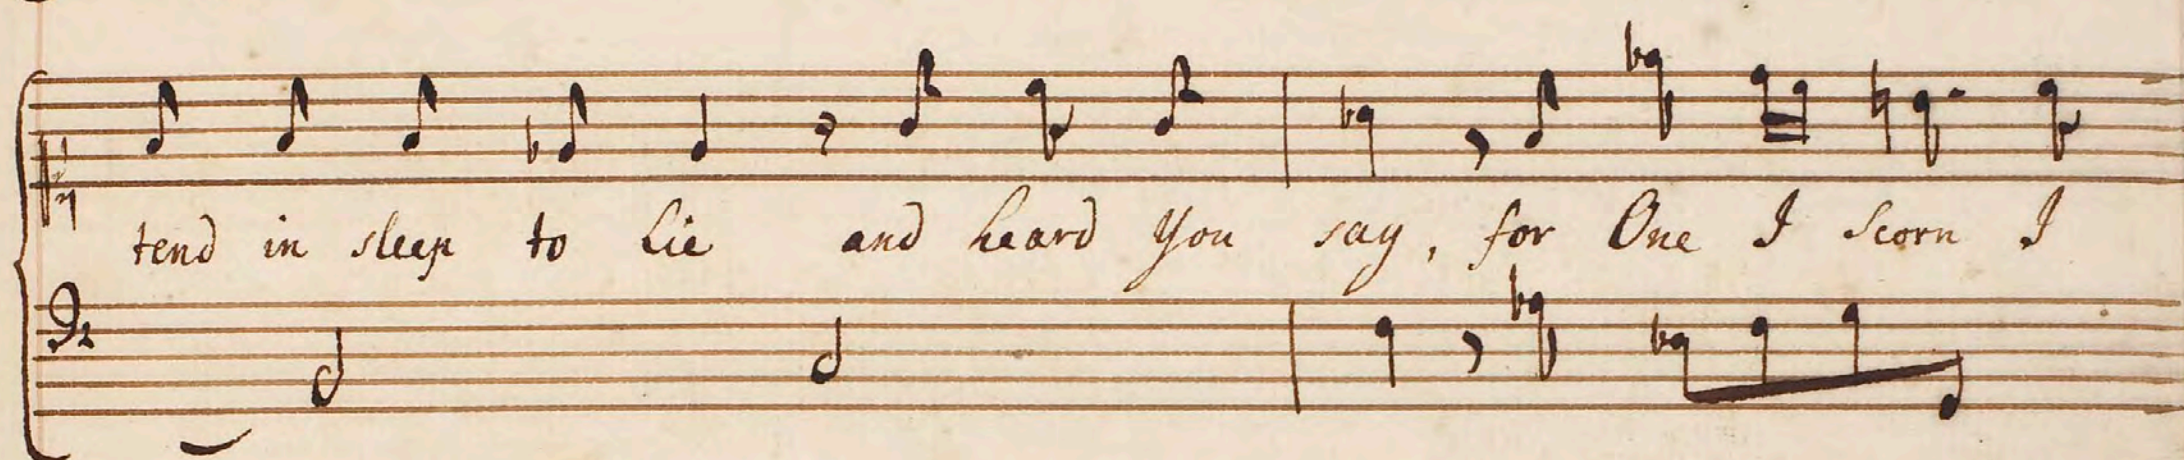 tend in sleep to lie and heard You say, for One I scorn I